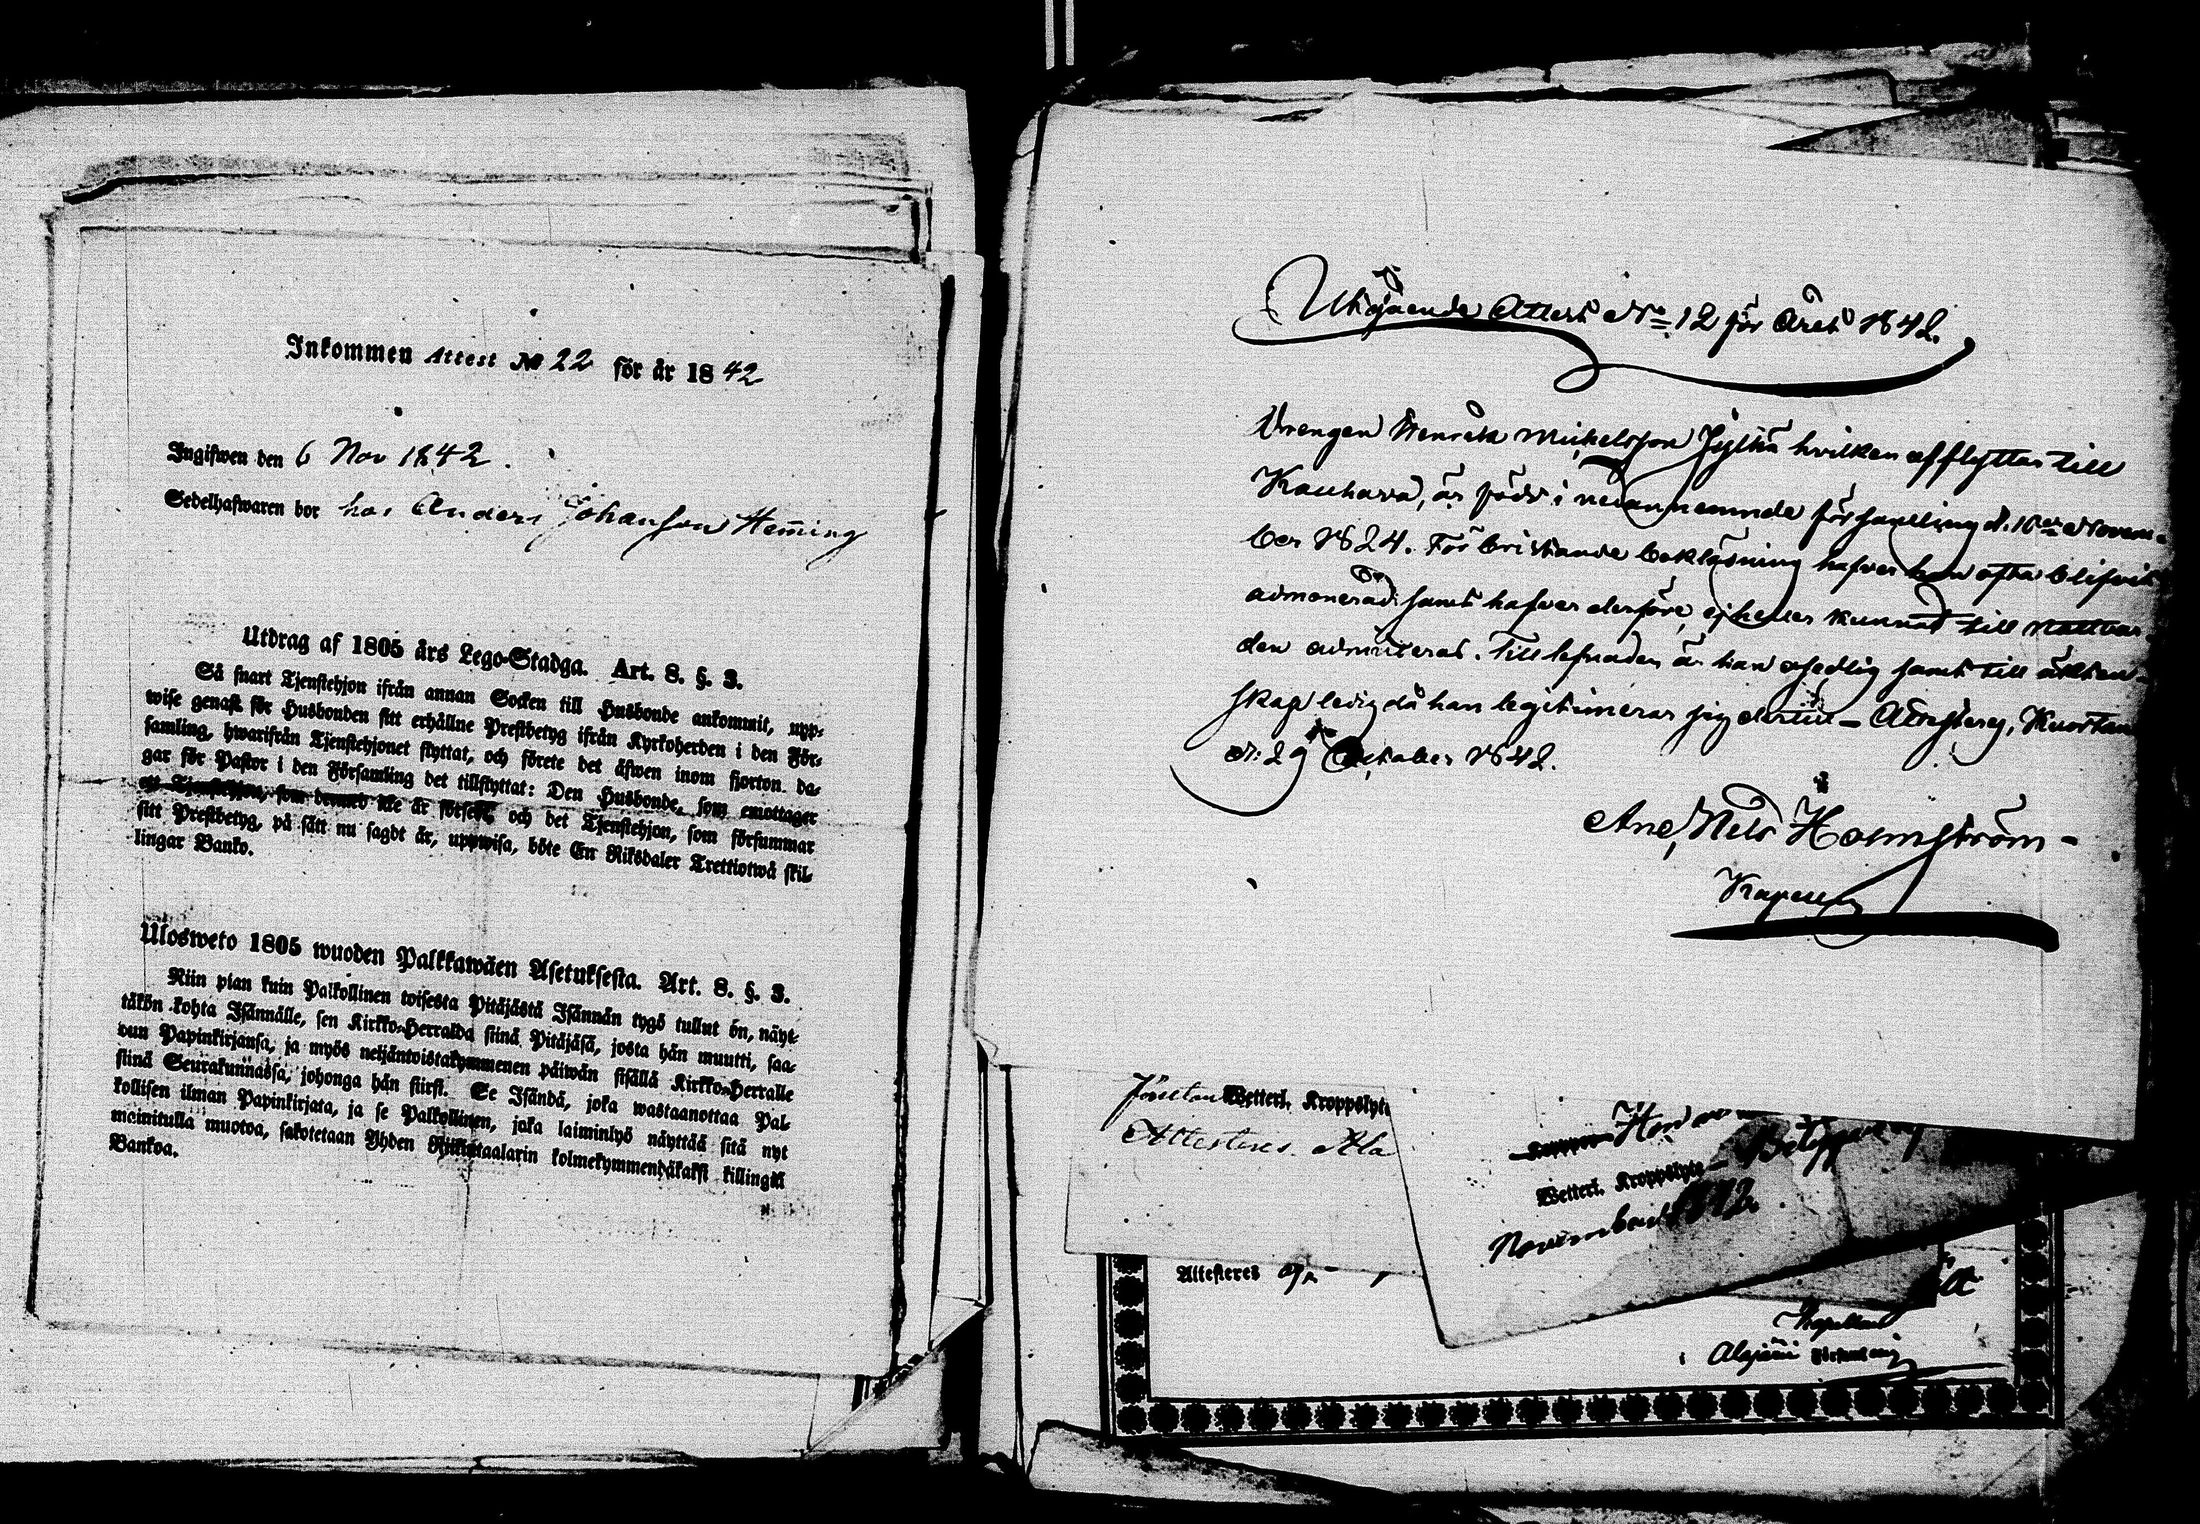 Inkommen Attest No 22 för år 1842
Ingifwen den 6 Nov 1842.
Sedelhafwaren bor hos Anders Johansson Heming
Utdrag af 1805 års Lego-Stadga. Art. 8. §. 3.
Så snart Tjenstehjon ifrån annan Socken till Husbonde ankommit, upp-
wise genast för Husbonden sitt erhållne Prestbetyg ifrån Kyrkoherden i den För-
samling, hwarifrån Tjenstehjonet flyttat, och förete det äfwen inom fjorton da-
gar för Pastor i den Församling det tillflyttat: Den Husbonde, som emottager
ett Tjenstehjon, som dermed icke är försedt, och det Tjenstehjon, som försummar
sitt Prestbetyg, på sätt nu sagdt är, uppwisa, böte En Riksdaler Trettiotwå skil-
lingar Banko.
Ulosweto 1805 wuoden Palkkawäen Asetuksesta. Art. 8. §. 3.
Niin pian kuin Palkollinen toisesta Pitäjästä Isännän tygö tullut on, näyt-
täkön kohta Isännälle, sen Kirkko-Herralda siinä Pitäjäsä, josta hän muutti, saa-
dun Papinkirjansa, ja myös neljäntoistakymmenen päiwän sisällä Kirkko-Herralle
siinä Seurakunnassa, johonga hän siirsi. Se Isändä, joka wastaanottaa Pal-
kollisen ilman Papinkirjata, ja se Palkollinen, joka laiminlyö näyttää sitä nyt
mainitulla muotoa, sakotetaan Yhden Riikintaalarin kolmekymmendäkaksi killingiä
Bankoa.
Utgående Attest No 12 för året 1842.
Drengen Henrik Mickelsson Jylhä hvilken afflyttar till
Kauhava, är född i nedannemnde församling d. 10de Novem-
ber 1824. För bristande beklädning hafver han ofta blifvit
admonerad samt hafver derföre ej heller kunnat till nattvar-
den admitteras. Till lefnaden är han osedlig samt till äkten-
skap ledig då han legitimerar sig dertill - Kuortane
d. 29 October 1842.
And. Nils Holmström
Kapellan
Wetterl. Kroppslyte
Attesteres. Ala
Wetterl. Kroppslyte
November 1842.
Attesteres
Kapellan
i Alajärvi Församling